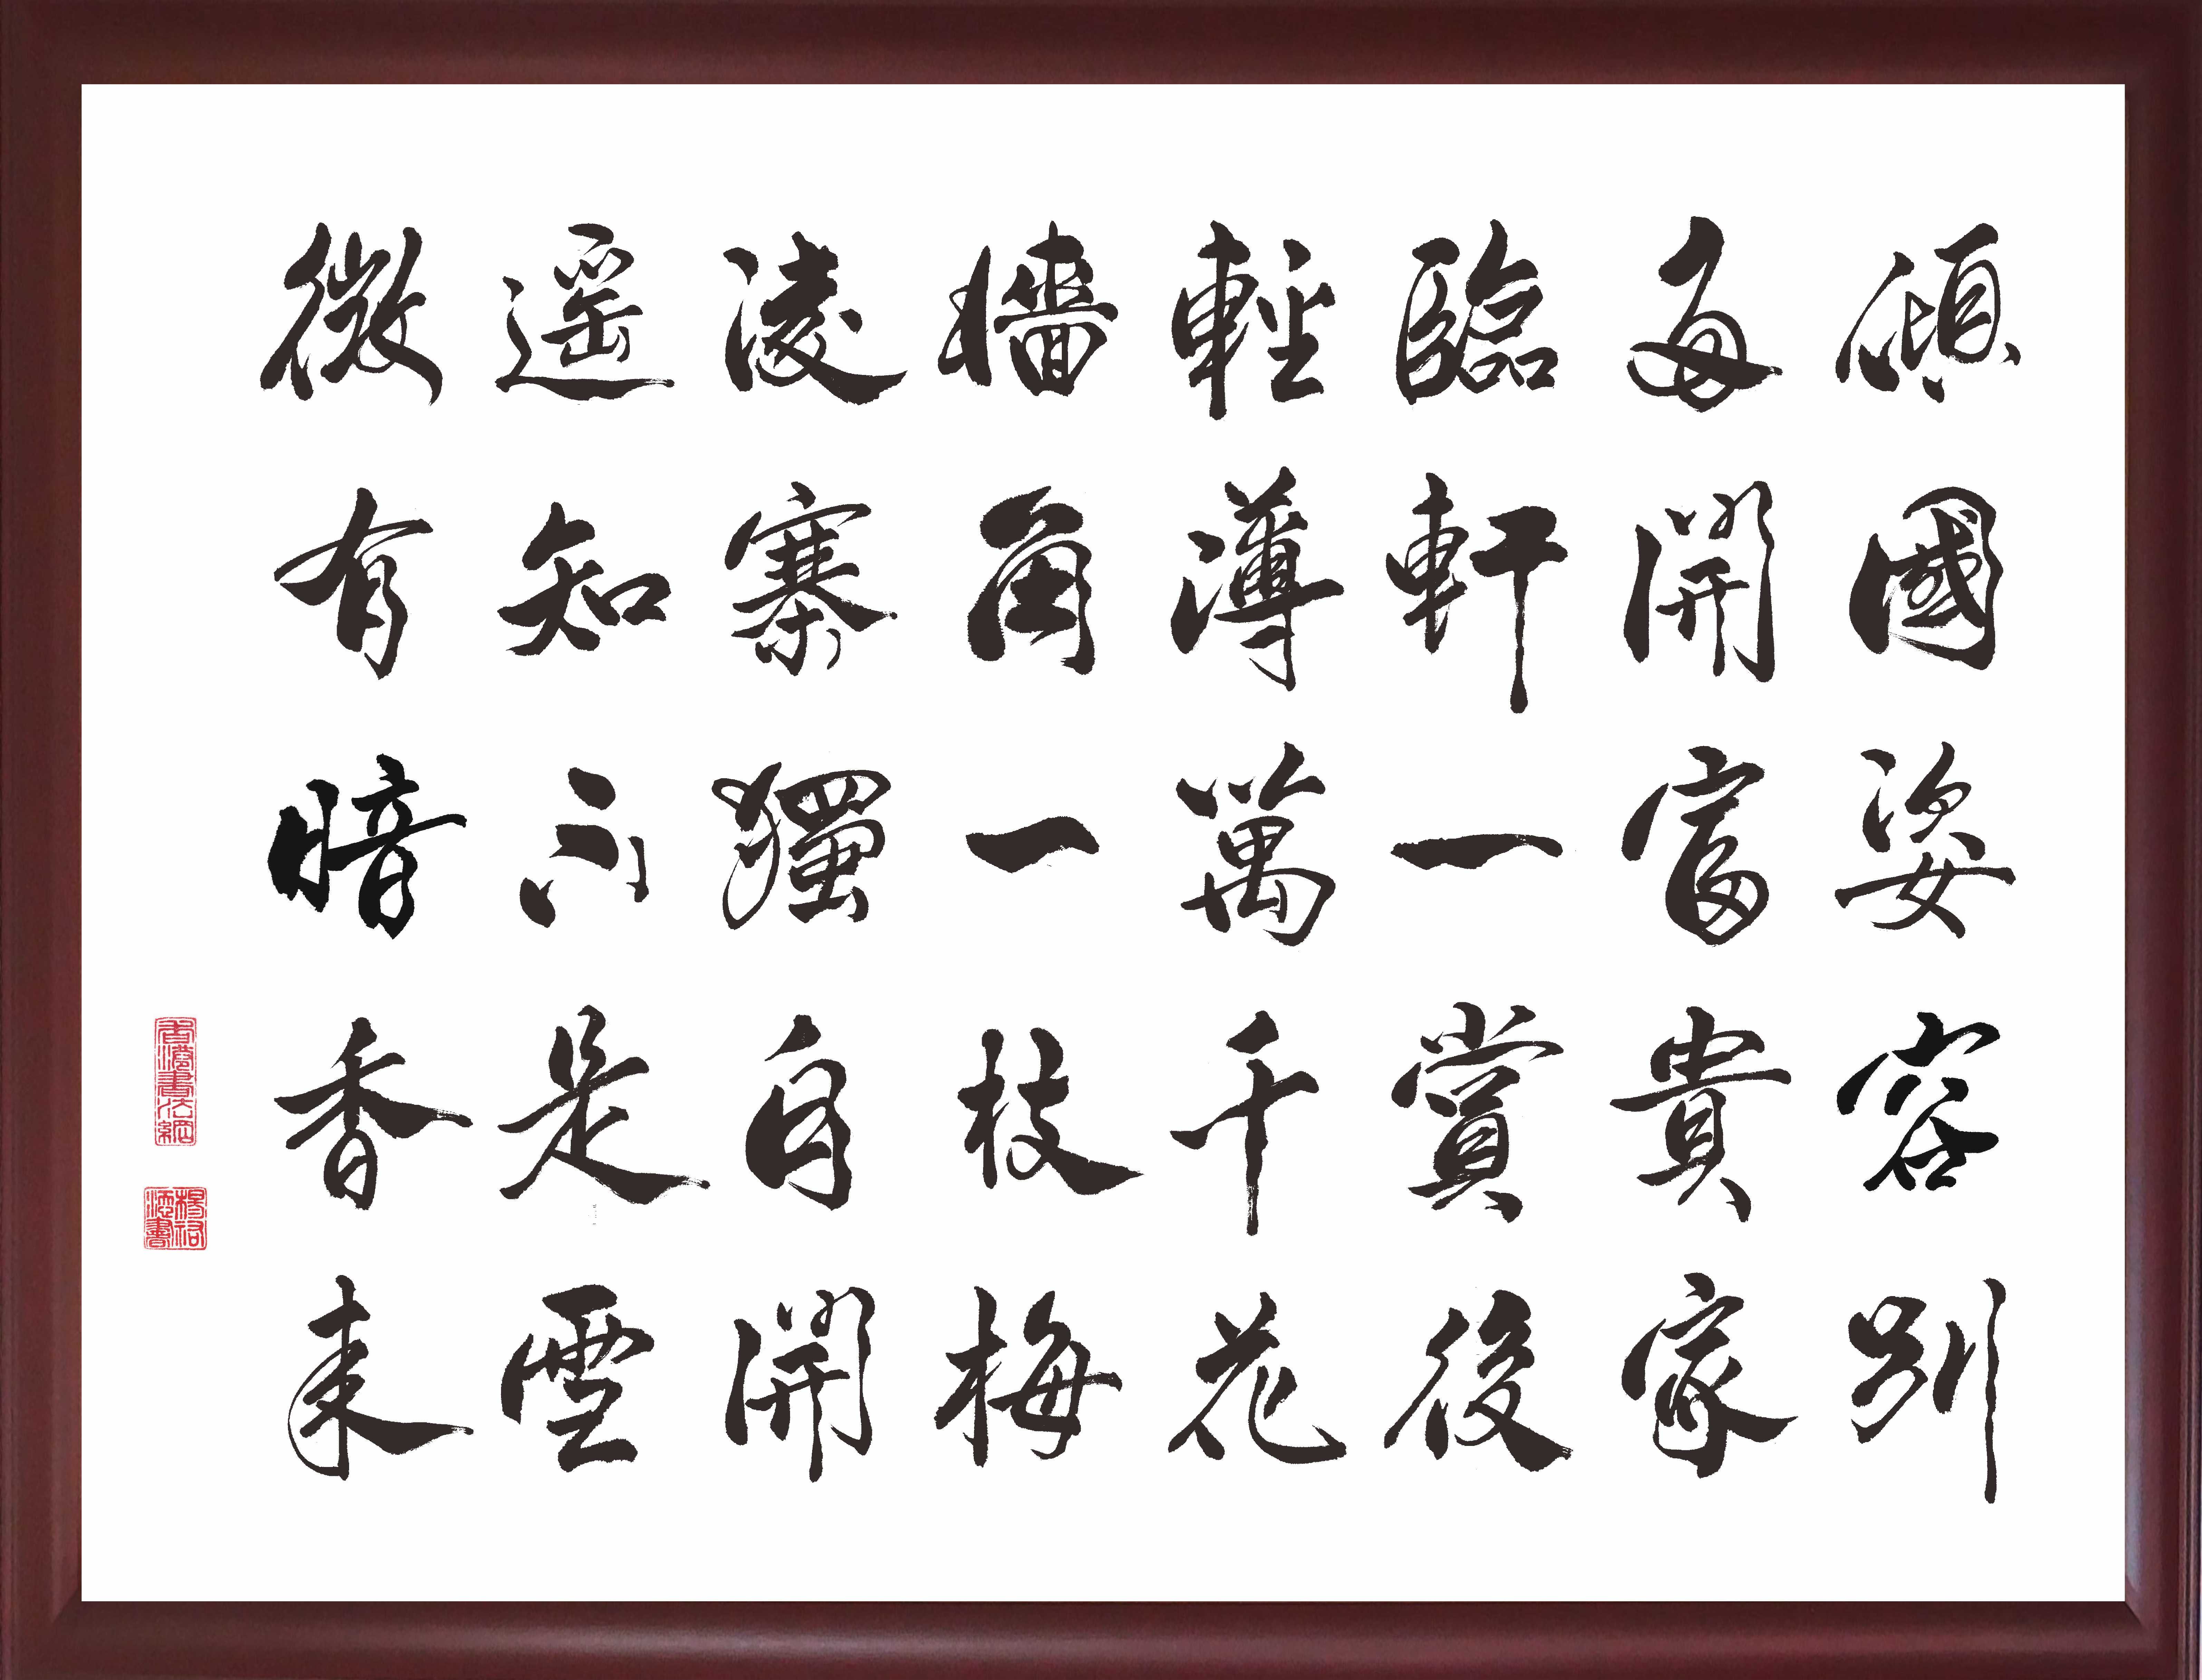 傾國姿容別
多開富貴家
臨軒一賞後
輕薄萬千花
牆角一枝梅
凌寒獨自開
遥知不是雪
微有暗香来
香港書法網